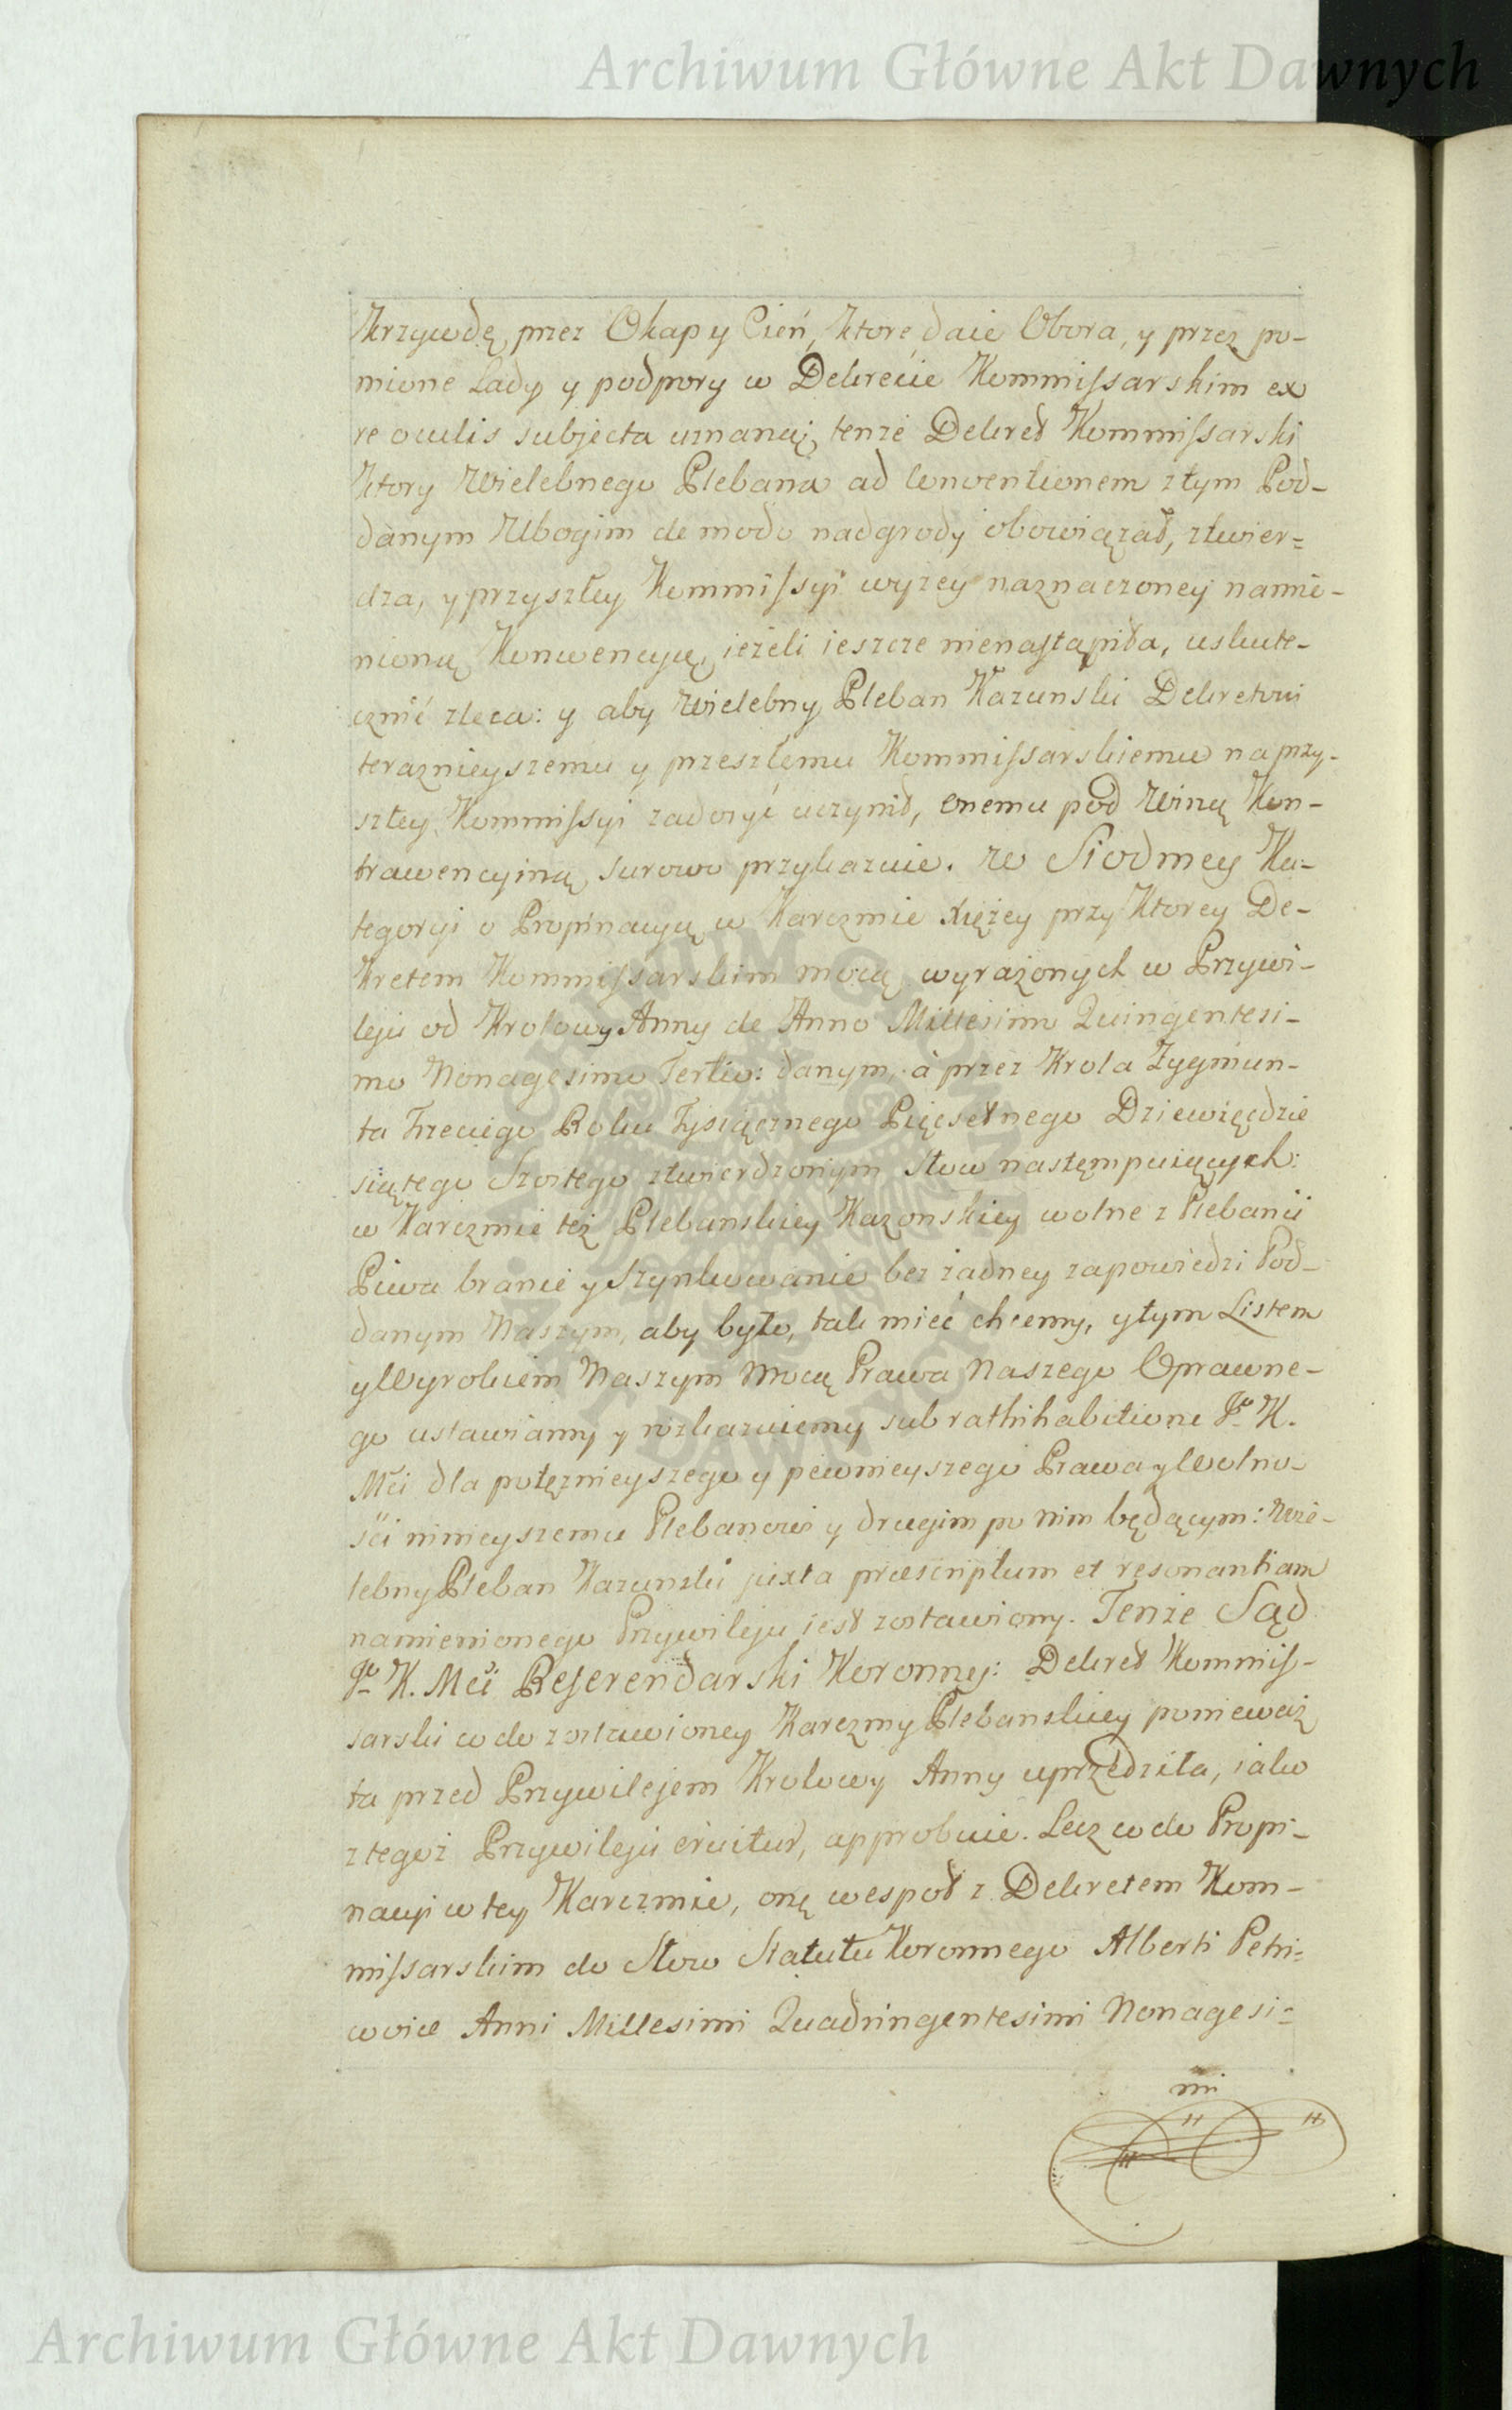 Archiwum Główne Akt Dawnych
Krzywdę przez Okap y Cień, ktore daie Obora, y przez po-
mione Lady y podpory w Dekrecie Kommissarskim ex
re oculis subjecta uznaną; tenze Dekret Kommissarski
ktory Wielebnego Plebana ad Conventionem z tym Pod-
danym Ubogim de modo nadgrody obowiązał, ztwier=
dza, y przyszłey Kommissyi wyzey naznaczoney namie-
nioną Konwencyą, iezeli ieszcze nienastąpiła, uskute-
cznić zleca: y aby Wielebny Pleban Kazunski Dekretowi
teraznieyszemu y przeszłemu Kommissarskiemu na przy-
szłey Kommissyi zadosyć uczynił, onemu pod Winą Kon-
trawencyiną surowo przykazuie. w Siodmey Ka-
tegoryi o Propinacyą w Karczmie Xiężey przy Ktorey De-
kretem Kommissarskim mocą wyrażonych w Przywi-
leju od Krolowy Anny de Anno Millesimo Quingentesi-
mo Nonagesimo Tertio: danym, à przez Krola Zygmun-
ta Trzeciego Roku Tysiącznego Pięsetnego Dziewięćdzie
siątego Szostego ztwierdzonym Słow następuiących:
w Karczmie też Plebanskiey Kazonskiey wolne z Plebanii
Piwa branie y Szynkowanie bez żadney zapowiedzi Pod-
danym Naszym, aby było, tak mieć chcemy, y tym Listem
y Wyrokiem Naszym Mocą Prawa Naszego Oprawne-
go ustawiamy y rozkazuiemy sub rathihabitione Jo K.
Mći dla potężnieyszego y pewnieyszego Prawa y Wolno-
ści ninieyszemu Plebanowi y drugim po nim będącym: Wie-
lebny Pleban Kazunski juxta præscriptum et resonantiam
namienionego Przywileju iest zostawiony. Tenze Sąd
Jo K. Mći Referendarski Koronny: Dekret Kommis-
sarski co do zostawioney Karczmy Plebanskiey poniewaz
ta przed Przywilejem Krolowy Anny uprzedziła, iako
z tegoż Przywileju eruitur, approbuie. Lecz co do Propi-
nacyi w tey Karczmie, onę wespoł z Dekretem Kom-
missarskim do Słow Statutu Koronnego Alberti Petri=
coviæ Anni Millesimi Quadringentesimi Nonagesi=
mi
Archiwum Główne Akt Dawnych